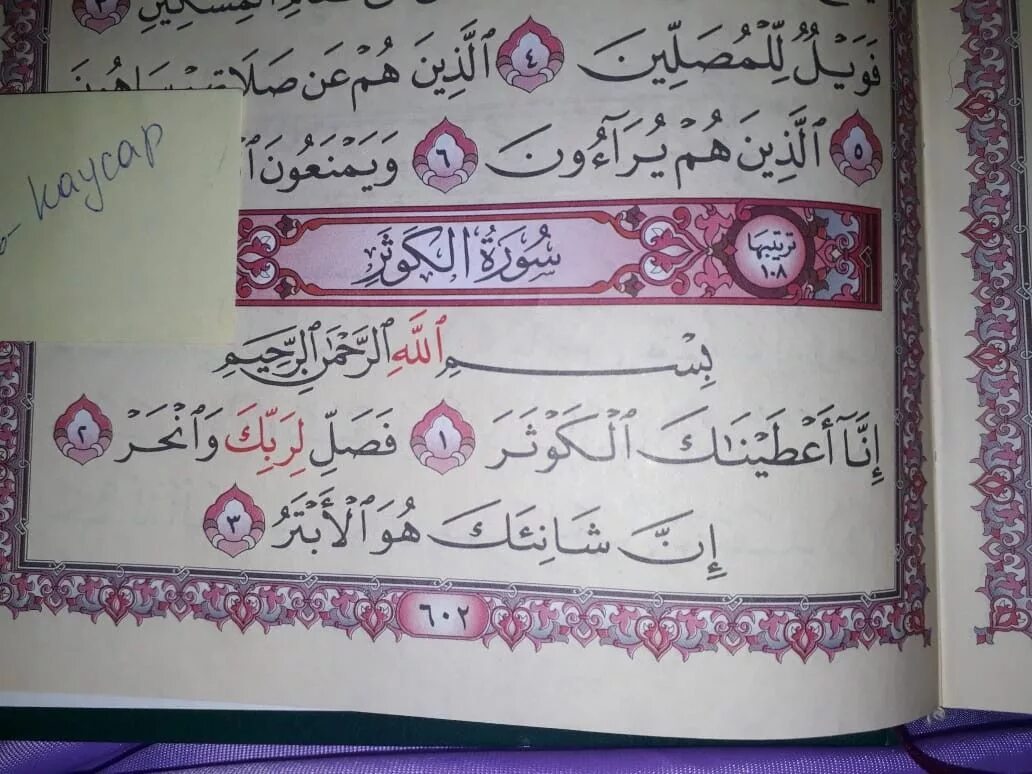 المسكين ٣
فَوَيْلٌ لِّلْمُصَلِّينَ ٤ ٱلَّذِينَ هُمْ عَن صَلَاتِهِمْ سَاهُونَ
٥ ٱلَّذِينَ هُمْ يُرَآءُونَ ٦ وَيَمْنَعُونَ
- каусар
سُورَةُ الكَوْثَرِ
ترتيبها ١٠٨
بِسْمِ ٱللَّهِ ٱلرَّحْمَٰنِ ٱلرَّحِيمِ
إِنَّآ أَعْطَيْنَٰكَ ٱلْكَوْثَرَ ١ فَصَلِّ لِرَبِّكَ وَٱنْحَرْ ٢
إِنَّ شَانِئَكَ هُوَ ٱلْأَبْتَرُ ٣
٦٠٢